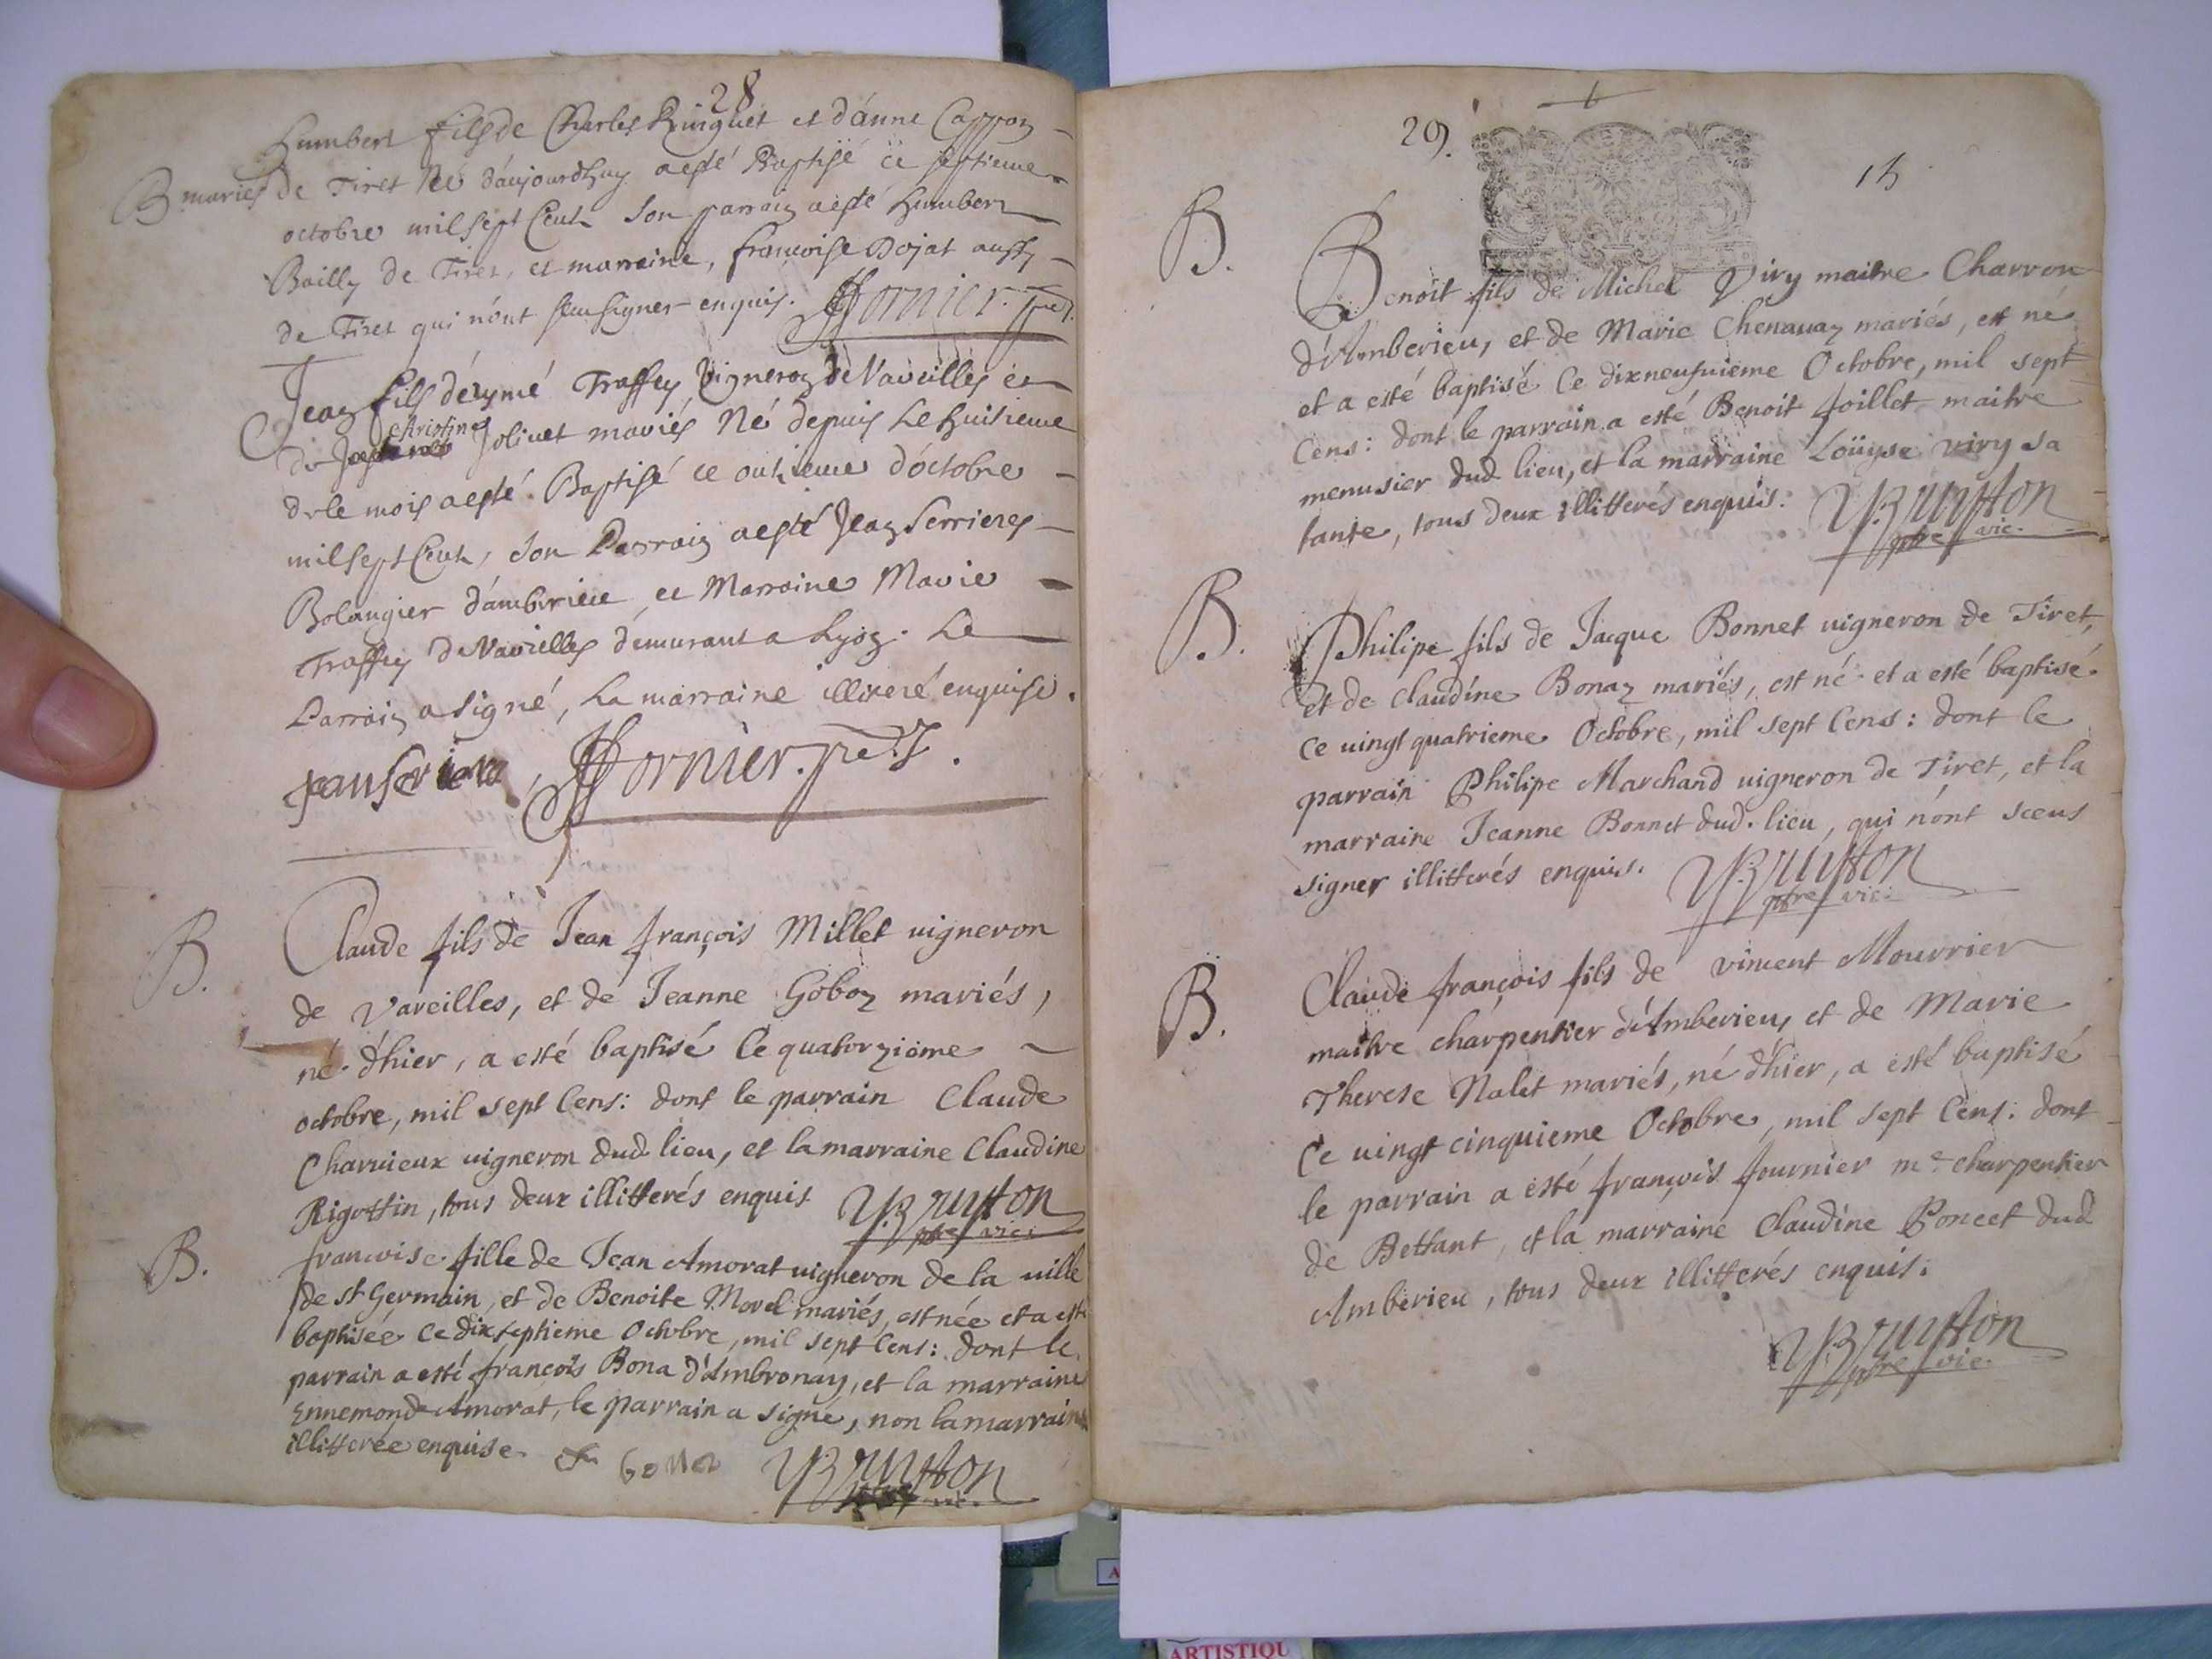 28
humbert fils de Charles Ringuet et d'anne Cappon
B mariés de Tiret Né d'aujourdhuy aesté Baptisé ce septieme
octobre mil sept Cent son parrain aesté humbert
Bailly de Tiret, et marraine, francoise Dojat aussy
de Tiret qui n'ont sceu signer enquis. Fornier. ptre
Jean fils déymé Traffey Vigneron de Vareilles et
christine
de Jolivet mariés Né depuis Le huitieme
de le mois aesté Baptisé ce onzieme d'octobre
mil sept Cent, son Parrain aesté Jean Serrieres
Bolangier d'amberieu et Marraine Marie
Traffey de Vareilles demurant a Lyon. Le
Parrain a signé, La marraine illiteré enquise.
Fornier. ptre.
B. Claude fils de Jean françois Millet vigneron
de Vareilles, et de Jeanne Goboz mariés,
né d'hier, a esté baptisé Ce quatorzième
octobre, mil sept Cens: dont le parrain Claude
Charvieux vigneron dud. lieu, et la marraine Claudine
Rigottin, tous deux illitterés enquis Bruiston
ptre vic.
B. francoise fille de Jean Amorat vigneron de la ville
de st Germain, et de Benoite Morel mariés, est née et a esté
baptisée Ce dixseptieme Octobre, mil sept Cens: dont le
parrain a esté françois Bona d'Ambronay, et la marraine
Ennemonde Amorat, le parrain a signé, non la marraine
illitterée enquise. Bona Bruiston
29.
15
B. Benoit fils de Michel Viry maitre Charron
d'Amberieu, et de Marie Chenavaz mariés, est né
et a esté baptisé Ce dixneufuieme Octobre, mil sept
Cens: dont le parrain a esté Benoit foillet maitre
menusier dud. lieu, et la marraine Loüyse viry sa
tante, tous deux illitterés enquis. Bruiston
ptre vic.
B. Philipe fils de Jacque Bonnet vigneron de Tiret,
et de Claudine Bonaz mariés, est né et a esté baptisé
ce vingt quatrieme Octobre, mil sept Cens: dont le
parrain Philipe Marchand vigneron de Tiret, et la
marraine Jeanne Bonnet dud. lieu, qui n'ont sceus
signer illitterés enquis. Bruiston
ptre vic.
B. Claude françois fils de vincent Mourrier
maitre charpentier d'Amberieu, et de Marie
Therese Nalet mariés, né d'hier, a esté baptisé
Ce vingt cinquieme Octobre, mil sept Cens: dont
le parrain a esté françois fournier me charpentier
de Bettant, et la marraine Claudine Poncet dud.
Amberieu, tous deux illitterés enquis.
Bruiston
ptre vic.
ARTISTIQU